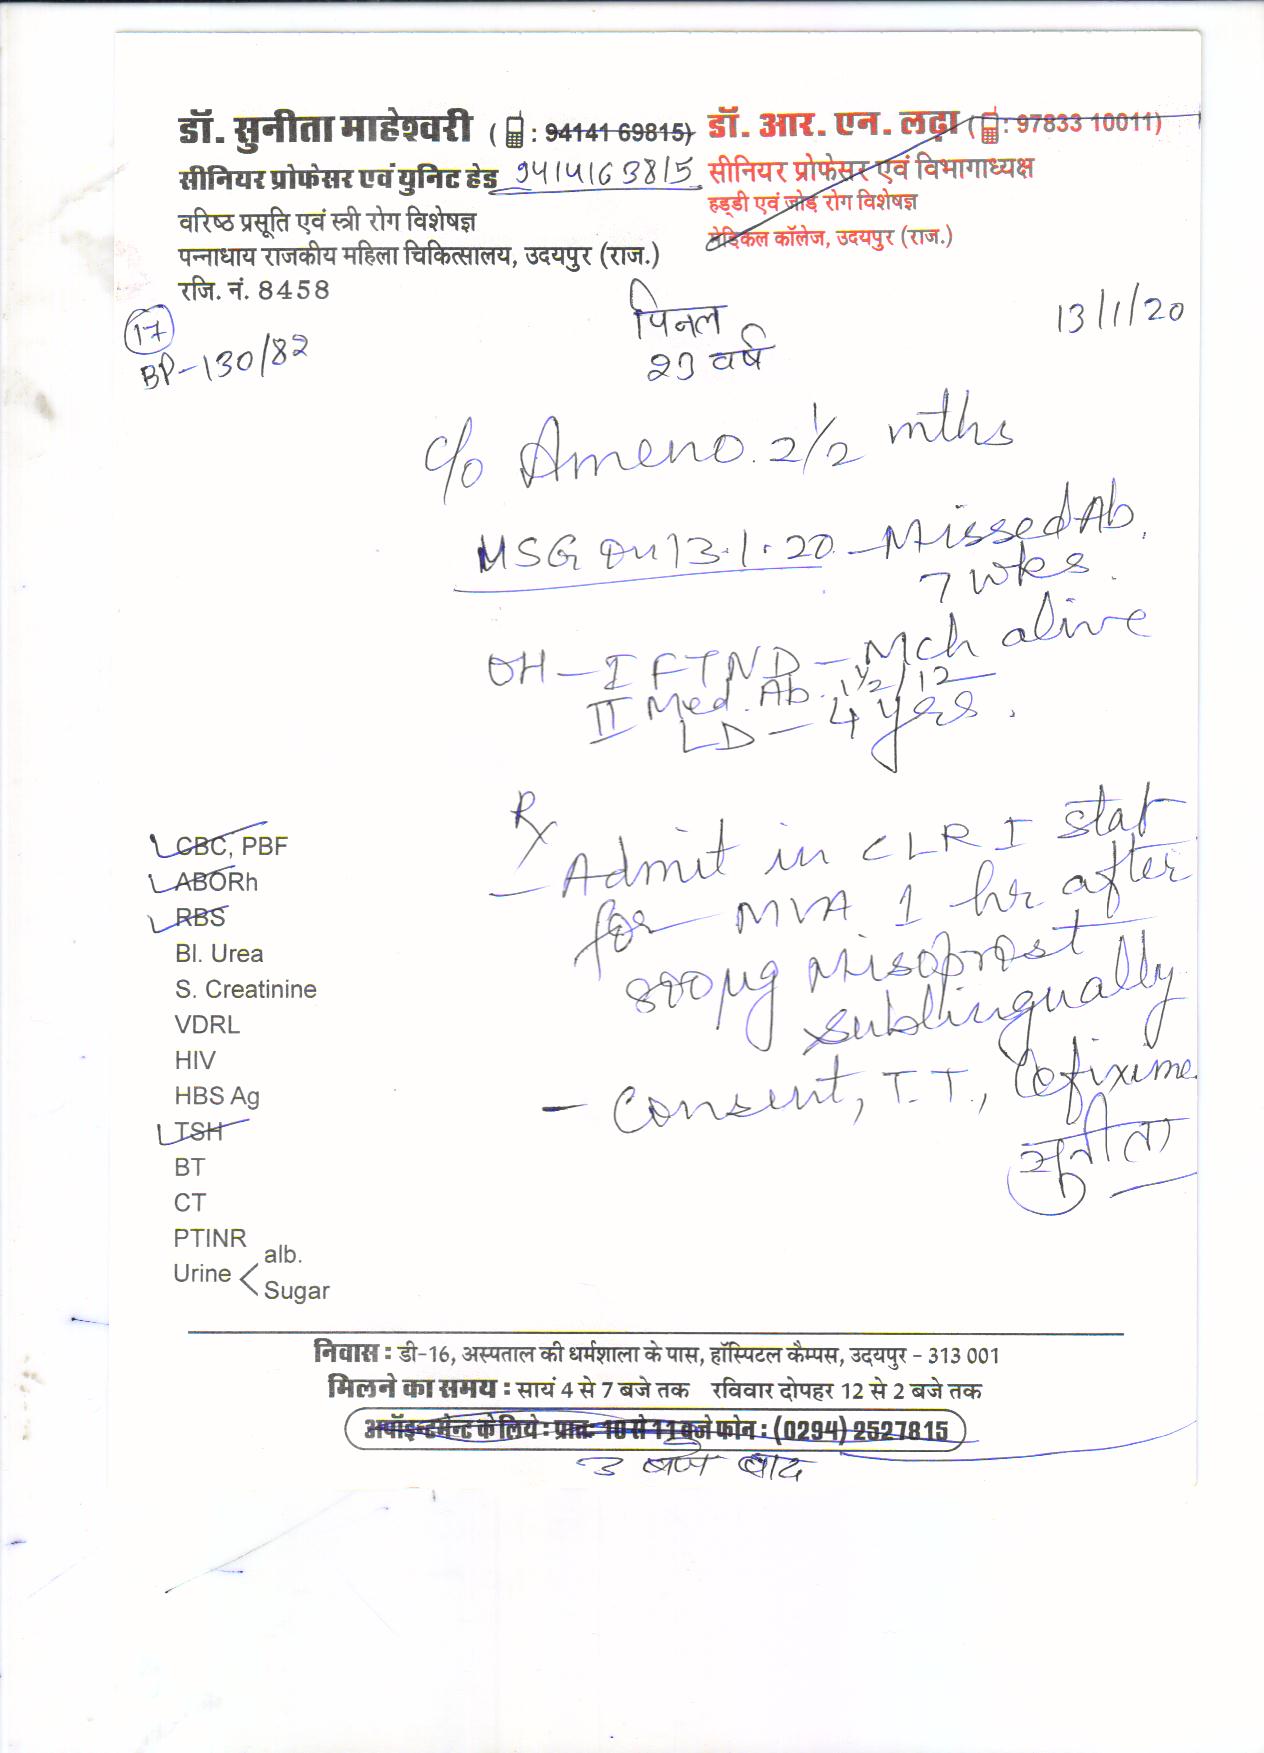 डॉ. सुनीता माहेश्वरी ( : 94141 69815)
सीनियर प्रोफेसर एवं युनिट हेड 9414163815
वरिष्ठ प्रसूति एवं स्त्री रोग विशेषज्ञ
पन्नाधाय राजकीय महिला चिकित्सालय, उदयपुर (राज.)
रजि. नं. 8458
डॉ. आर. एन. लढ़ा ( : 97833 10011)
सीनियर प्रोफेसर एवं विभागाध्यक्ष
हड्डी एवं जोड़ रोग विशेषज्ञ
मेडिकल कॉलेज, उदयपुर (राज.)
17
BP-130/82
पिनल
वर्ष
13/1/20
c/o Ameno. 2½ mths
on 13.1.20 - Missed Ab.
7 wks.
OH - I FTND - Mch alive
II Med. Ab. 1½/12
LD - 4 yrs.
Rx
- Admit in CLR I stat
for MVA 1 hr after
800 µg Misoprost
sublingually
- Consent, T.T., Cefixime
सुनीता
CBC, PBF
ABORh
RBS
Bl. Urea
S. Creatinine
VDRL
HIV
HBS Ag
TSH
BT
CT
PTINR
Urine < alb.
Sugar
निवास : डी-16, अस्पताल की धर्मशाला के पास, हॉस्पिटल कैम्पस, उदयपुर - 313 001
मिलने का समय : सायं 4 से 7 बजे तक रविवार दोपहर 12 से 2 बजे तक
अपॉइन्टमेन्ट के लिये : प्रातः 10 से 11 बजे फोन : (0294) 2527815
3 बजे बाद